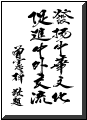 發揚中華文化
促進中外交流
曾憲梓 敬題